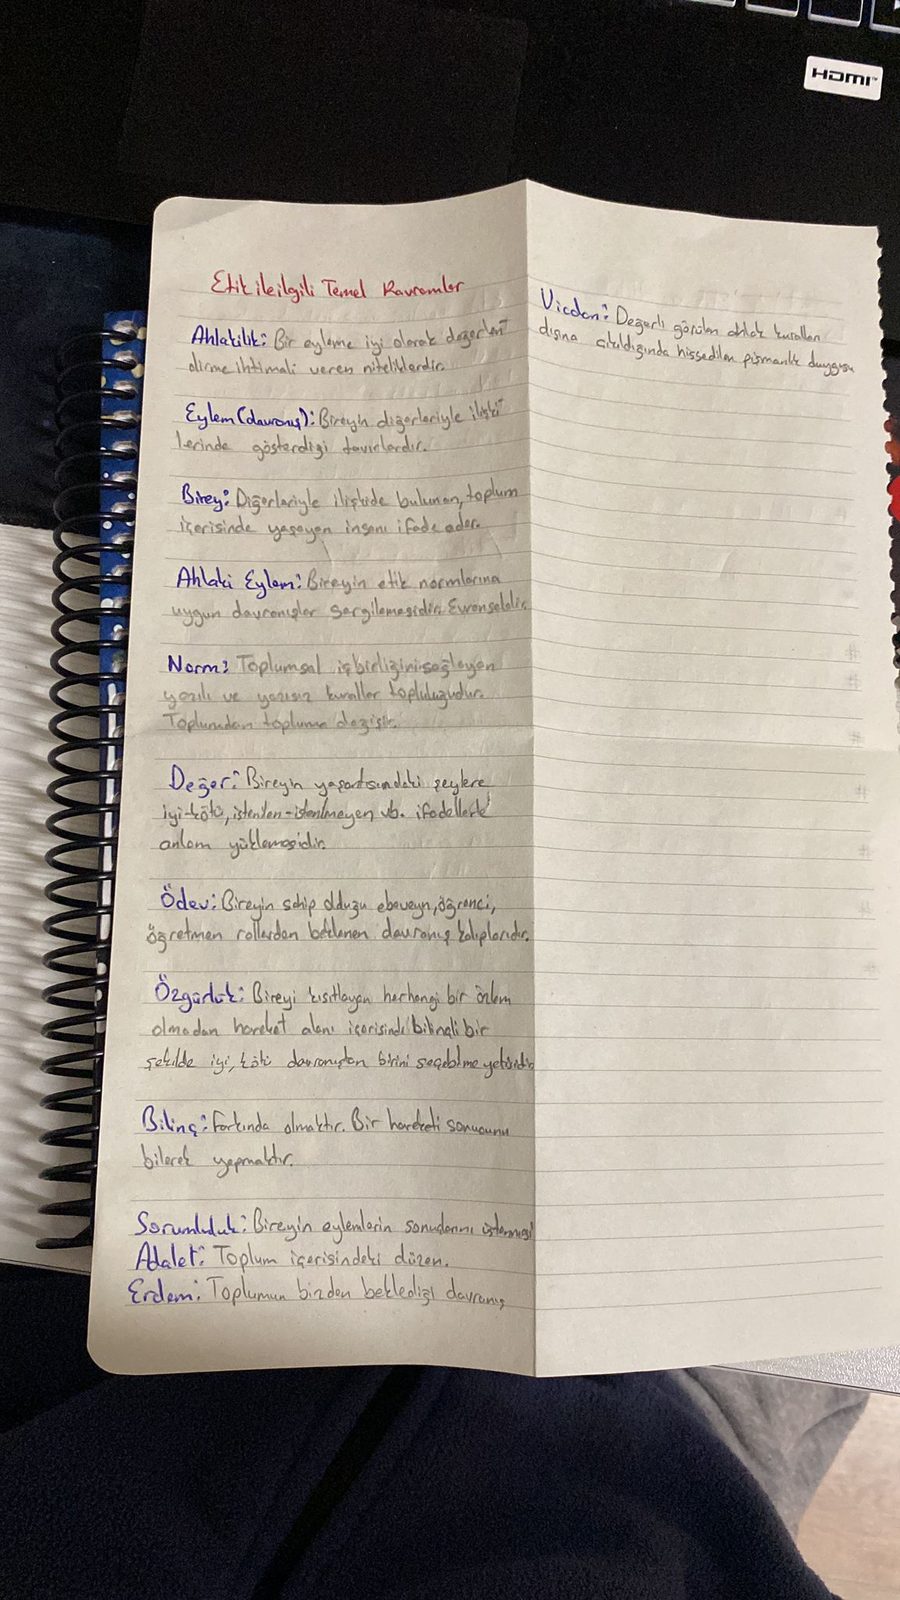 HDMI™
Etik ile ilgili Temel Kavramlar
Ahlakilik: Bir eyleme iyi olarak değerlen-
dirme ihtimali veren niteliklerdir.
Eylem (davranış): Bireyin diğerleriyle ilişki-
lerinde gösterdiği tavırlardır.
Birey: Diğerleriyle ilişkide bulunan, toplum
içerisinde yaşayan insanı ifade eder.
Ahlaki Eylem: Bireyin etik normlarına
uygun davranışlar sergilemesidir. Evrenseldir.
Norm: Toplumsal işbirliğini sağlayan
yazılı ve yazısız kurallar topluluğudur.
Toplumdan topluma değişir.
Değer: Bireyin yaşantısındaki şeylere
iyi-kötü, istenilen-istenilmeyen vb. ifadelerle
anlam yüklemesidir.
Ödev: Bireyin sahip olduğu ebeveyn, öğrenci,
öğretmen rollerden beklenen davranış kalıplarıdır.
Özgürlük: Bireyi kısıtlayan herhangi bir önlem
olmadan hareket alanı içerisinde bilinçli bir
şekilde iyi, kötü davranıştan birini seçebilme yetisidir.
Bilinç: Farkında olmaktır. Bir hareketi sonucunu
bilerek yapmaktır.
Sorumluluk: Bireyin eylemlerin sonuçlarını üstlenmesi
Adalet: Toplum içerisindeki düzen.
Erdem: Toplumun bizden beklediği davranış
Vicdan: Değerli görülen ahlak kuralları
dışına çıkıldığında hissedilen pişmanlık duygusu